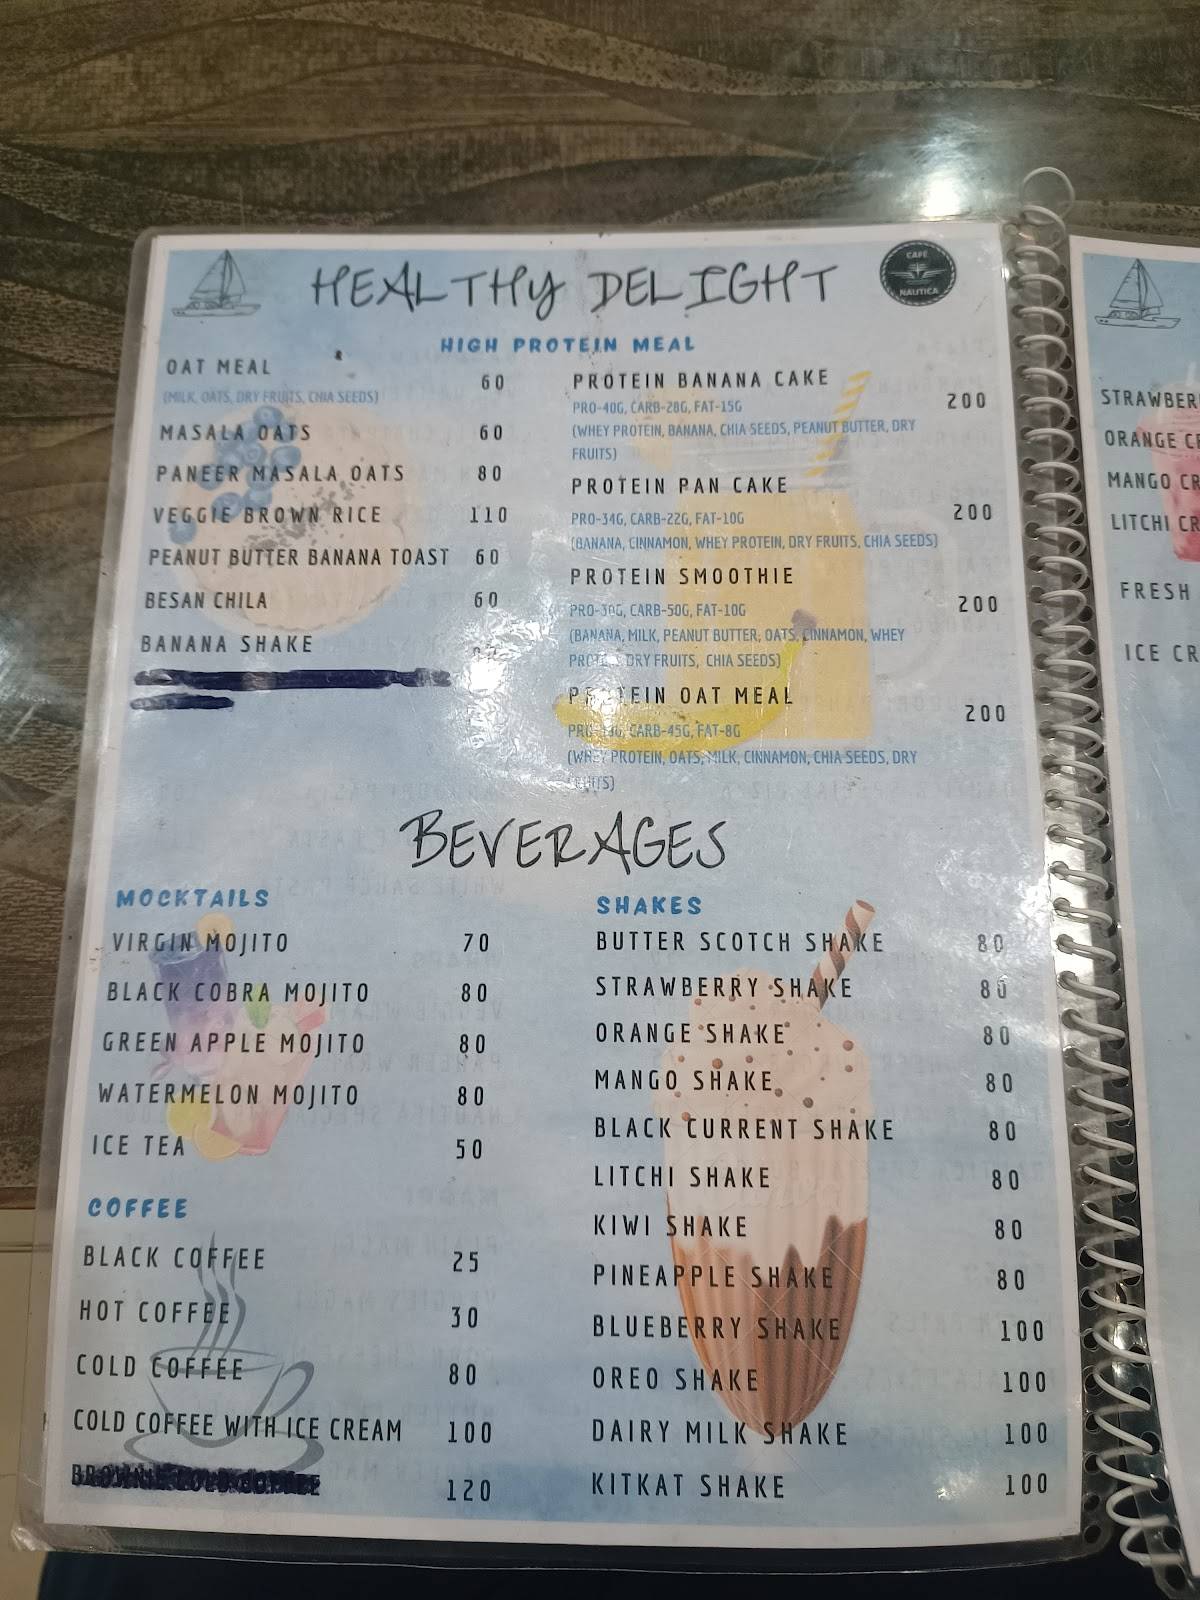 HEALTHY DELIGHT
CAFE
NAUTICA
HIGH PROTEIN MEAL
OAT MEAL 60
(MILK, OATS, DRY FRUITS, CHIA SEEDS)
MASALA OATS 60
PANEER MASALA OATS 80
VEGGIE BROWN RICE 110
PEANUT BUTTER BANANA TOAST 60
BESAN CHILA 60
BANANA SHAKE
PROTEIN BANANA CAKE 200
PRO-40G, CARB-28G, FAT-15G
(WHEY PROTEIN, BANANA, CHIA SEEDS, PEANUT BUTTER, DRY
FRUITS)
PROTEIN PAN CAKE 200
PRO-34G, CARB-22G, FAT-10G
(BANANA, CINNAMON, WHEY PROTEIN, DRY FRUITS, CHIA SEEDS)
PROTEIN SMOOTHIE 200
PRO-30G, CARB-50G, FAT-10G
(BANANA, MILK, PEANUT BUTTER, OATS, CINNAMON, WHEY
PROTEIN, DRY FRUITS, CHIA SEEDS)
PROTEIN OAT MEAL 200
CARB-45G, FAT-8G
(WHEY PROTEIN, OATS, MILK, CINNAMON, CHIA SEEDS, DRY
FRUITS)
BEVERAGES
MOCKTAILS
VIRGIN MOJITO 70
BLACK COBRA MOJITO 80
GREEN APPLE MOJITO 80
WATERMELON MOJITO 80
ICE TEA 50
COFFEE
BLACK COFFEE 25
HOT COFFEE 30
COLD COFFEE 80
COLD COFFEE WITH ICE CREAM 100
BROWNIE COLD COFFEE 120
SHAKES
BUTTER SCOTCH SHAKE 80
STRAWBERRY SHAKE 80
ORANGE SHAKE 80
MANGO SHAKE 80
BLACK CURRENT SHAKE 80
LITCHI SHAKE 80
KIWI SHAKE 80
PINEAPPLE SHAKE 80
BLUEBERRY SHAKE 100
OREO SHAKE 100
DAIRY MILK SHAKE 100
KITKAT SHAKE 100
STRAWBER
ORANGE CR
MANGO CR
LITCHI CR
FRESH
ICE CR